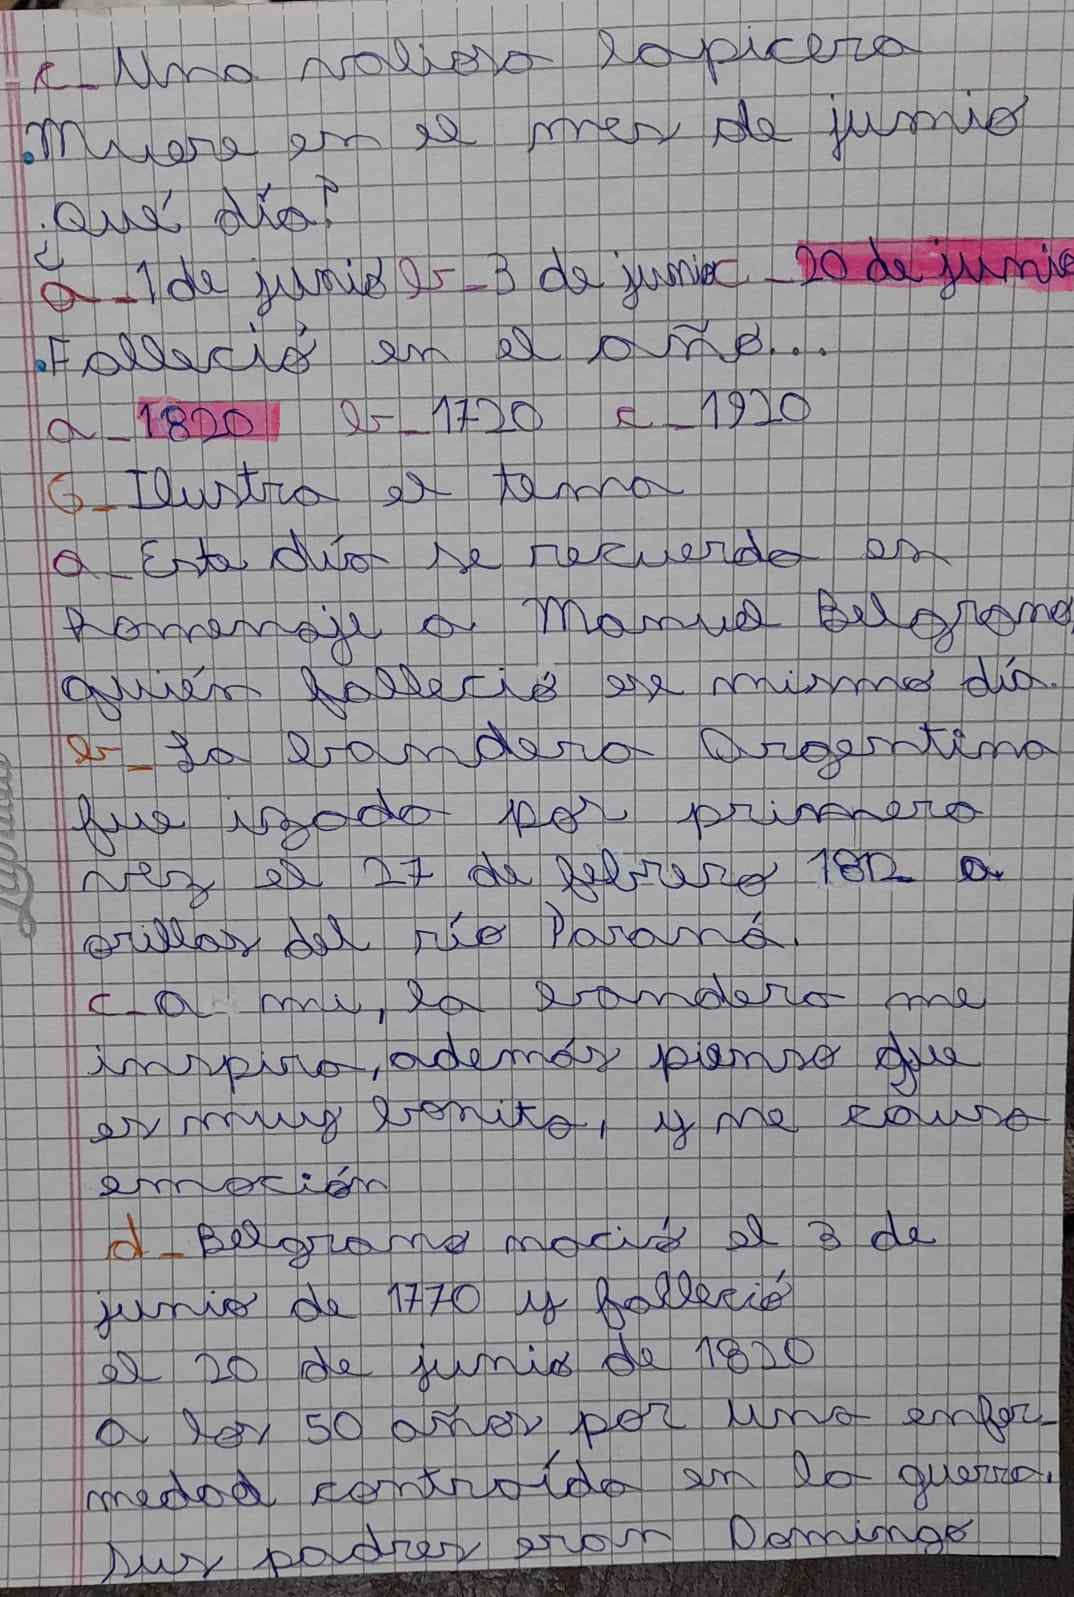 c_Una valiosa lapicera
.Muere en el mes de junio
¿Qué día?
a_1 de junio b_3 de junio c_20 de junio
.Falleció en el año...
a_1820 b_1720 c_1920
6_Ilustra el tema
a_Este día se recuerda en
homenaje a Manuel Belgrano,
quién falleció ese mismo día.
b_La bandera Argentina
fue izada por primera
vez el 27 de febrero 1812 a
orillas del río Paraná.
c_a mi, la bandera me
inspira, además pienso que
es muy bonita, y me causa
emoción
d_Belgrano nació el 3 de
junio de 1770 y falleció
el 20 de junio de 1820
a los 50 años por una enfer-
medad contraída en la guerra.
Sus padres eran Domingo